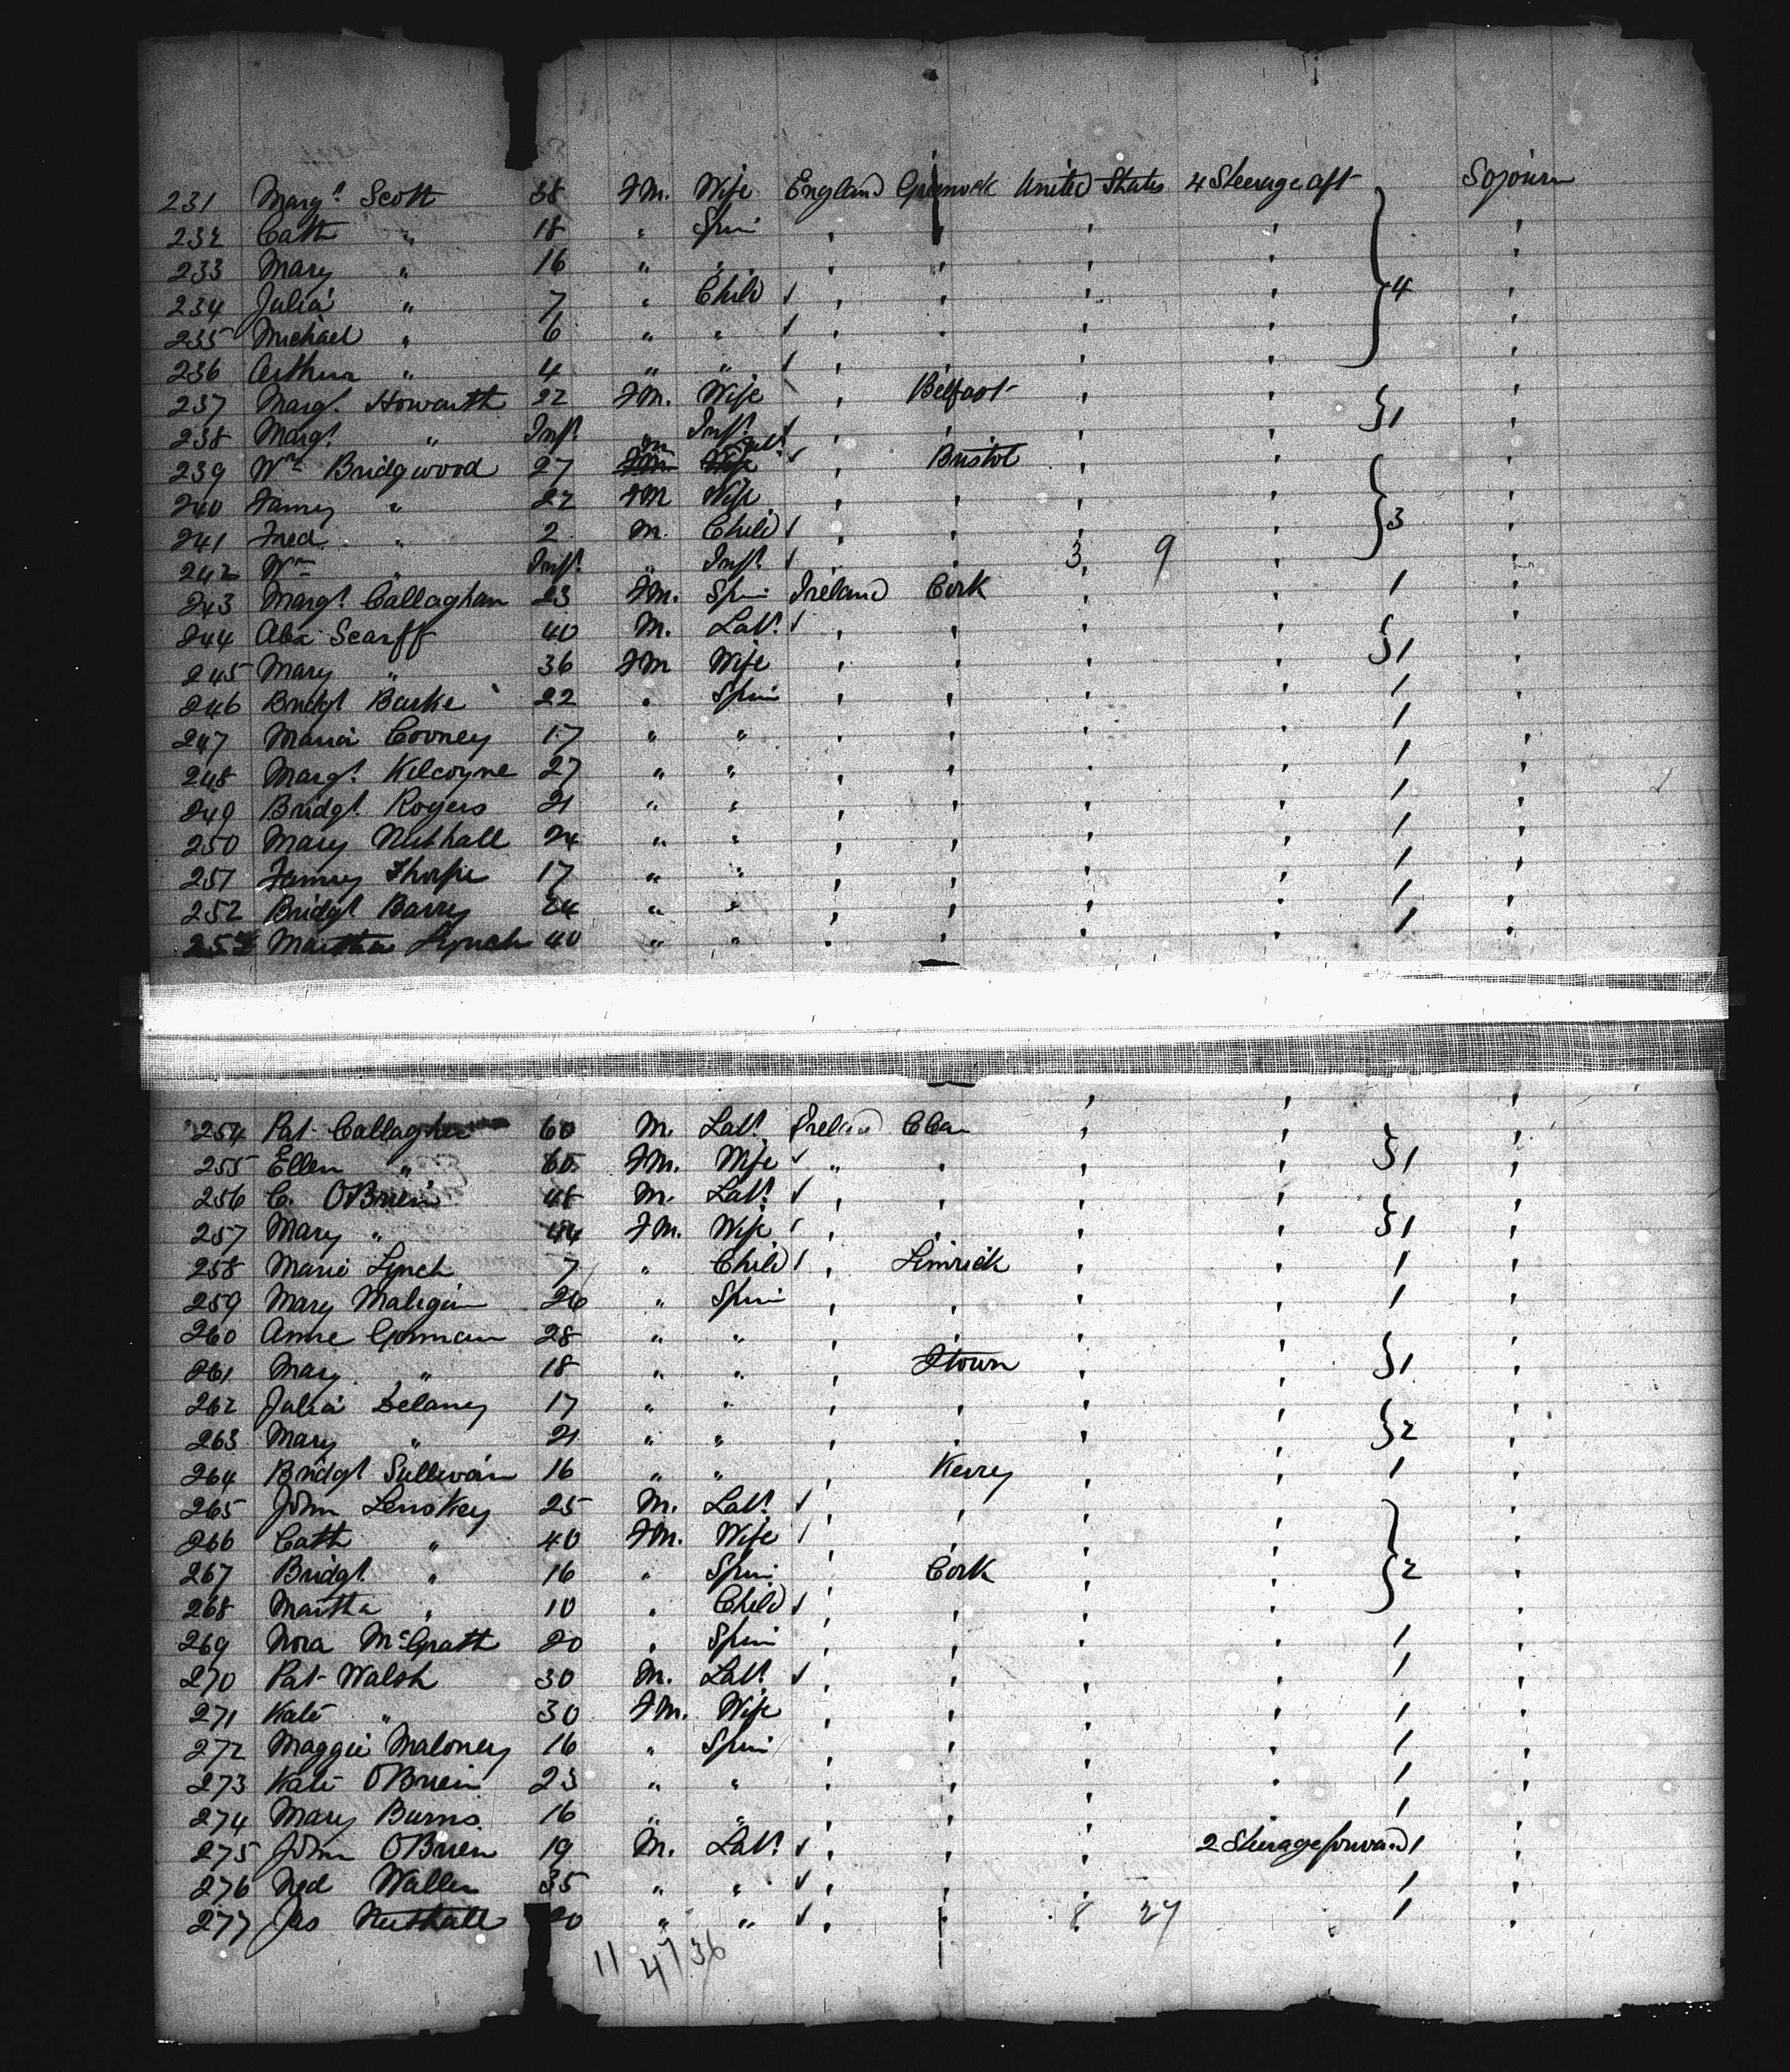 231 Margt Scott 38 Fm. Wife England Greenock United States 4 Steerage aft Sojourn
232 Cath " 18 " Spin ' ' ' ' '
233 Mary " 16 " " ' ' ' ' '
234 Julia " 7 " Child ✓ ' ' ' ' 4 '
235 Michael " 6 " " ✓ ' ' ' ' '
236 Arthur " 4 " " ✓ ' ' ' ' '
237 Margt. Howarth 22 Fm. Wife ' Belfast ' ' '
238 Margt. " Inft. " Inft. ✓ ' ' ' ' }1 '
239 Wm Bridgwood 27 M Labr ✓ ' Bristol ' ' '
240 Fanny " 22 Fm Wife ' ' ' ' '
241 Fred " 2 M. Child ✓ ' ' ' ' }3 '
242 Wm " Inft. " Inft. ✓ ' ' 3 9 ' '
243 Margt. Callaghan 23 Fm. Spin Ireland Cork ' ' 1 '
244 Alex Scarff 40 M. Labr. ✓ ' ' ' ' '
245 Mary " 36 Fm Wife ' ' ' ' }1 '
246 Bridgt Burke 22 " Spin ' ' ' ' 1 '
247 Maria Cooney 17 " " ' ' ' ' 1 '
248 Margt. Kilcoyne 27 " " ' ' ' ' 1 '
249 Bridgt. Rogers 21 " " ' ' ' ' 1 '
250 Mary Nuthall 24 " " ' ' ' ' 1 '
251 Fanny Thorpe 17 " " ' ' ' ' 1 '
252 Bridgt Barry 24 " " ' ' ' ' 1 '
253 Martha Lynch 40 " " ' ' ' ' 1 '
254 Pat Callaghan 60 M. Labr. Ireland Clare ' ' '
255 Ellen " 65 Fm. Wife ✓ " ' ' ' }1 '
256 C. OBrien 48 M. Labr. ✓ ' ' ' ' '
257 Mary " 44 Fm. Wife ✓ ' ' ' ' }1 '
258 Marie Lynch 7 " Child ✓ ' Limrick ' ' 1 '
259 Mary Maligan 26 " Spin ' ' ' ' 1 '
260 Anne Gorman 28 " " ' ' ' ' '
261 Mary " 18 " " ' Qtown ' ' }1 '
262 Julia Delaney 17 " " ' ' ' ' '
263 Mary " 21 " " ' ' ' ' }2 '
264 Bridgt Sullivan 16 " " ' Kerry ' ' 1 '
265 John Lenskey 25 M. Labr. ✓ ' ' ' ' '
266 Cath " 40 Fm. Wife ✓ ' ' ' ' '
267 Bridgt. " 16 " Spin ' Cork ' ' }2 '
268 Martha " 10 " Child ✓ ' ' ' ' '
269 Nora McGrath 20 " Spin ' ' ' ' 1 '
270 Pat Walsh 30 M. Labr. ✓ ' ' ' ' 1 '
271 Kate " 30 Fm. Wife ' ' ' ' 1 '
272 Maggie Maloney 16 " Spin ' ' ' ' 1 '
273 Kate OBrien 23 " " ' ' ' ' 1 '
274 Mary Burns. 16 " " ' ' ' ' 1 '
275 John OBrien 19 M. Labr. ✓ ' ' ' 2 Steerage forward 1 '
276 Ned Waller 35 " " ✓ ' ' ' 1 '
277 Jas Nuthall 20 " " ✓ ' ' 8 27 1 '
11 47 36